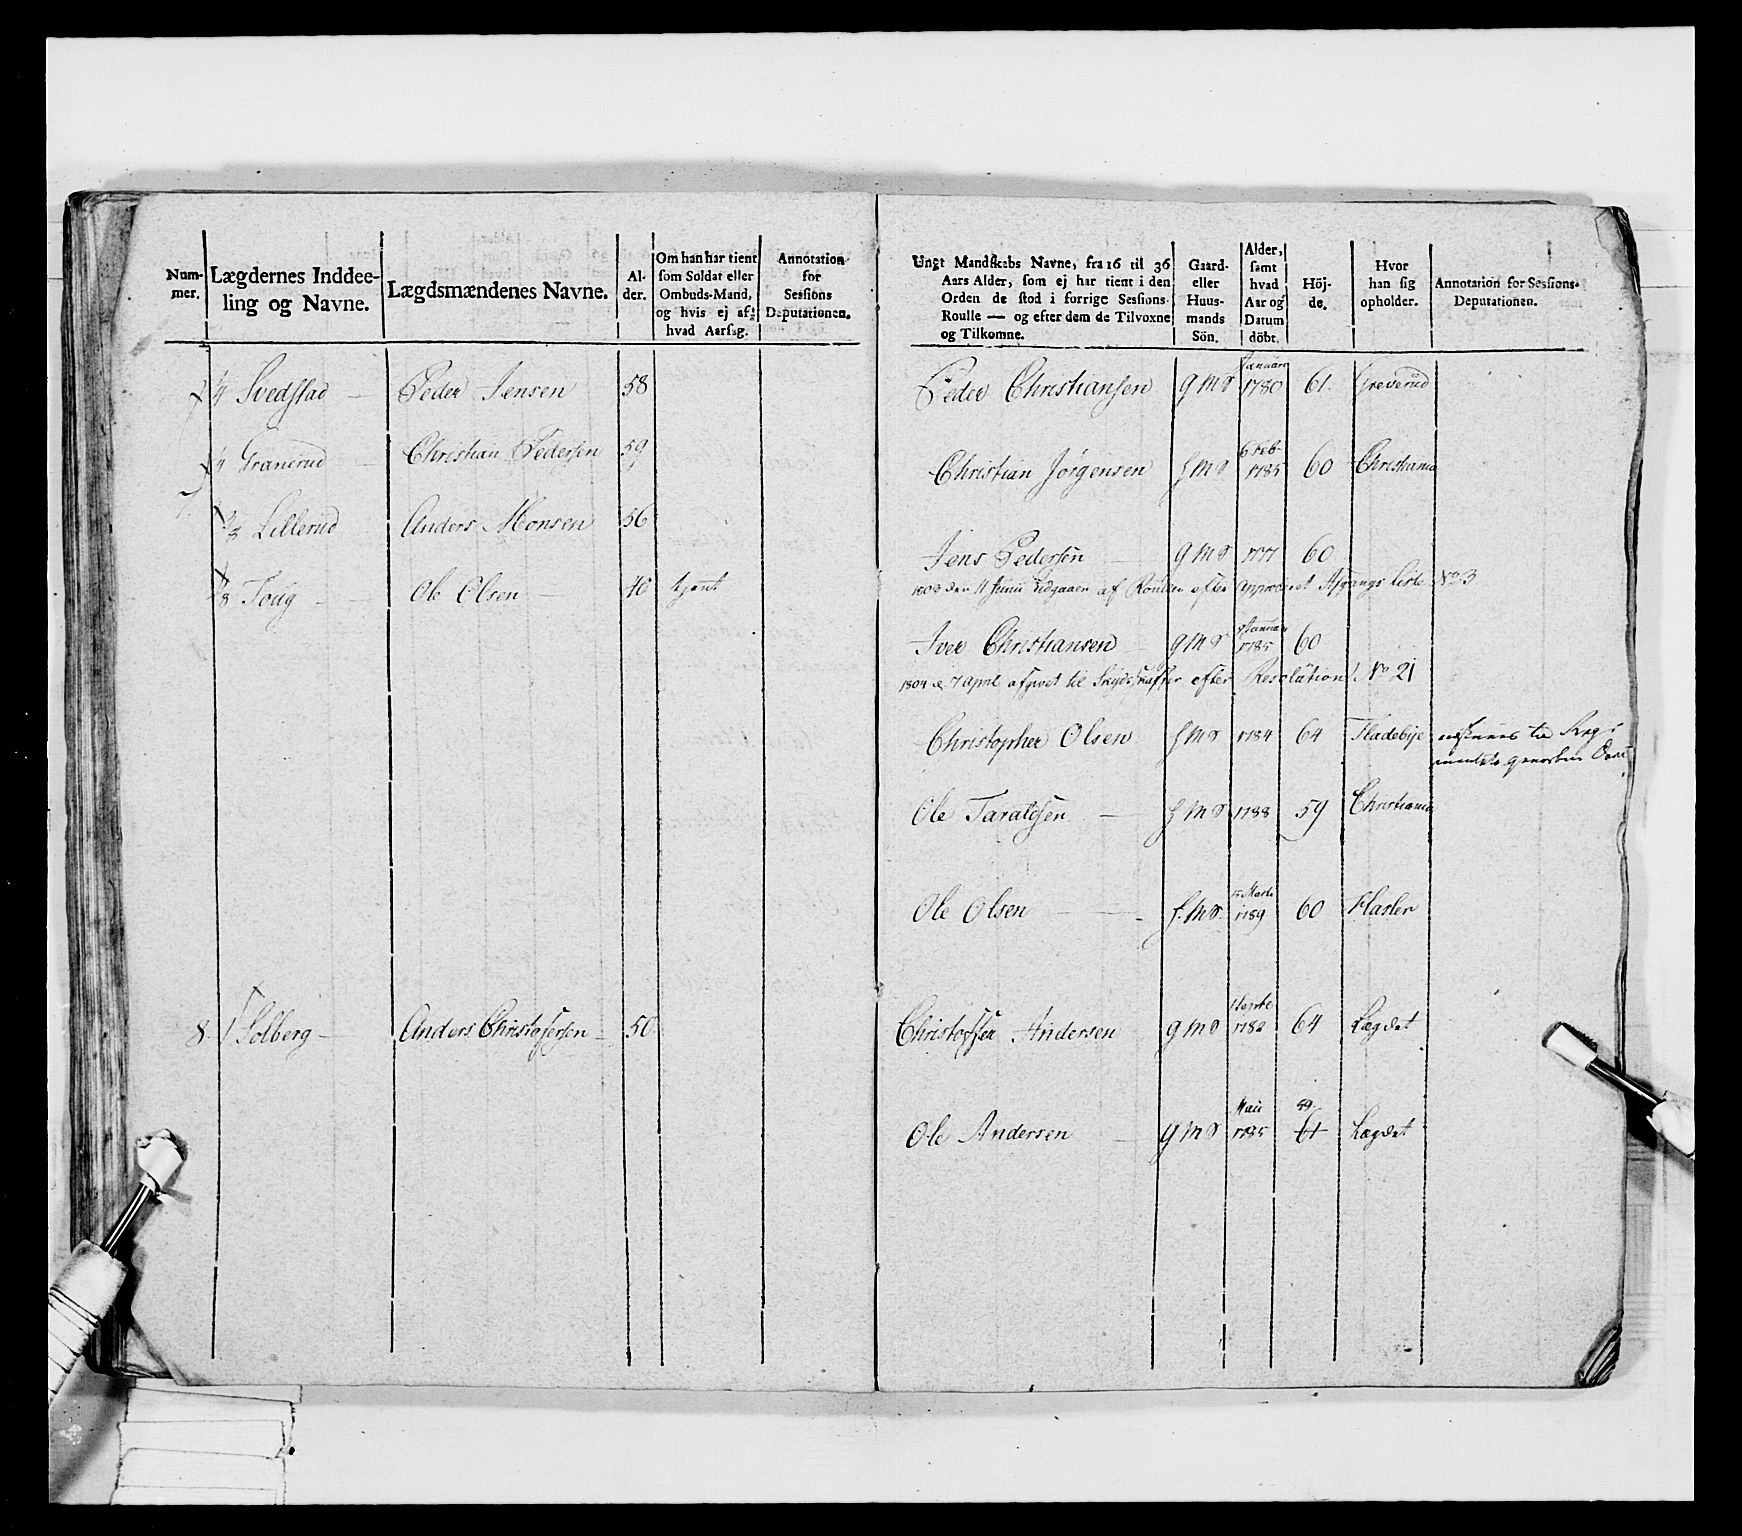 Num-
mer.
Lægdernes Inddee-
ling og Navne.
Lægdsmændenes Navne.
Al-
der.
Om han har tient
som Soldat eller
Ombuds-Mand,
og hvis ej af
hvad Aarsag.
Annotation
for
Sessions
Deputationen.
1/4 Svedstad Peder Jensen 58
1/4 Granerud Christian Pedersen 59
Lillerud Anders Monsen 56
Toug Ole Olsen 40 tjent
8 1 Solberg Anders Christofersen 50
Ungt Mandskabs Navne, fra 16 til 36
Aars Alder, som ej har tient i den
Orden de stod i forrige Sessions-
Roulle — og efter dem de Tilvoxne
og Tilkomne.
Gaard-
eller
Huus-
mands
Sön.
Alder,
samt
hvad
Aar og
Datum
döbt.
Höj-
de.
Hvor
han sig
opholder.
Annotation for Sessions-
Deputationen.
Januari
Peder Christiansen g M S 1780 61. Greverud
6 Feb
Christian Jörgensen h M S 1785 60 Christiania
Jens Pedersen g M S 1777 60
1803 den 11 Junii Udgaaen af Roullen efter approberet Afgangs Liste No 3
9 Januar
Iver Christiansen g M S 1785 60
1804 d. 7 April afgivet til Skydsskaffer efter Resolution No 21
Christopher Olsen h M S 1784 64 Fladebye
Ole Taraldsen h M S 1788 59 Christiania
15 Marti
Ole Olsen h. M S. 1789 60 Hasler
Septbr
Christoffer Andersen g M S 1782 64 Lægdet
Maii 59.
Ole Andersen g M S 1785 61 Lægdet